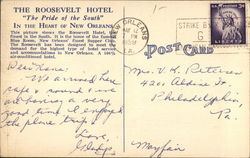 THE ROOSEVELT HOTEL
"The Pride of the South"
IN THE HEART OF NEW ORLEANS
This picture shows the Roosevelt Hotel, the
finest in the South. It is the home of the famed
Blue Room, New Orleans' finest Supper Club.
The Roosevelt has been designed to meet the
demand for the highest type of hotel service
and accommodations in New Orleans. A 100%
air-conditioned hotel.
NEW ORLEANS
PM
STRIKE B
G
POST CARD
Dear Nana:
We arrived here
safe & sound & are
having a very
good time. I enjoyed
the plane trip.
Love,
Gladys
Mrs. V. K. Peterson
Philadelphia
Pa.
Mayfair